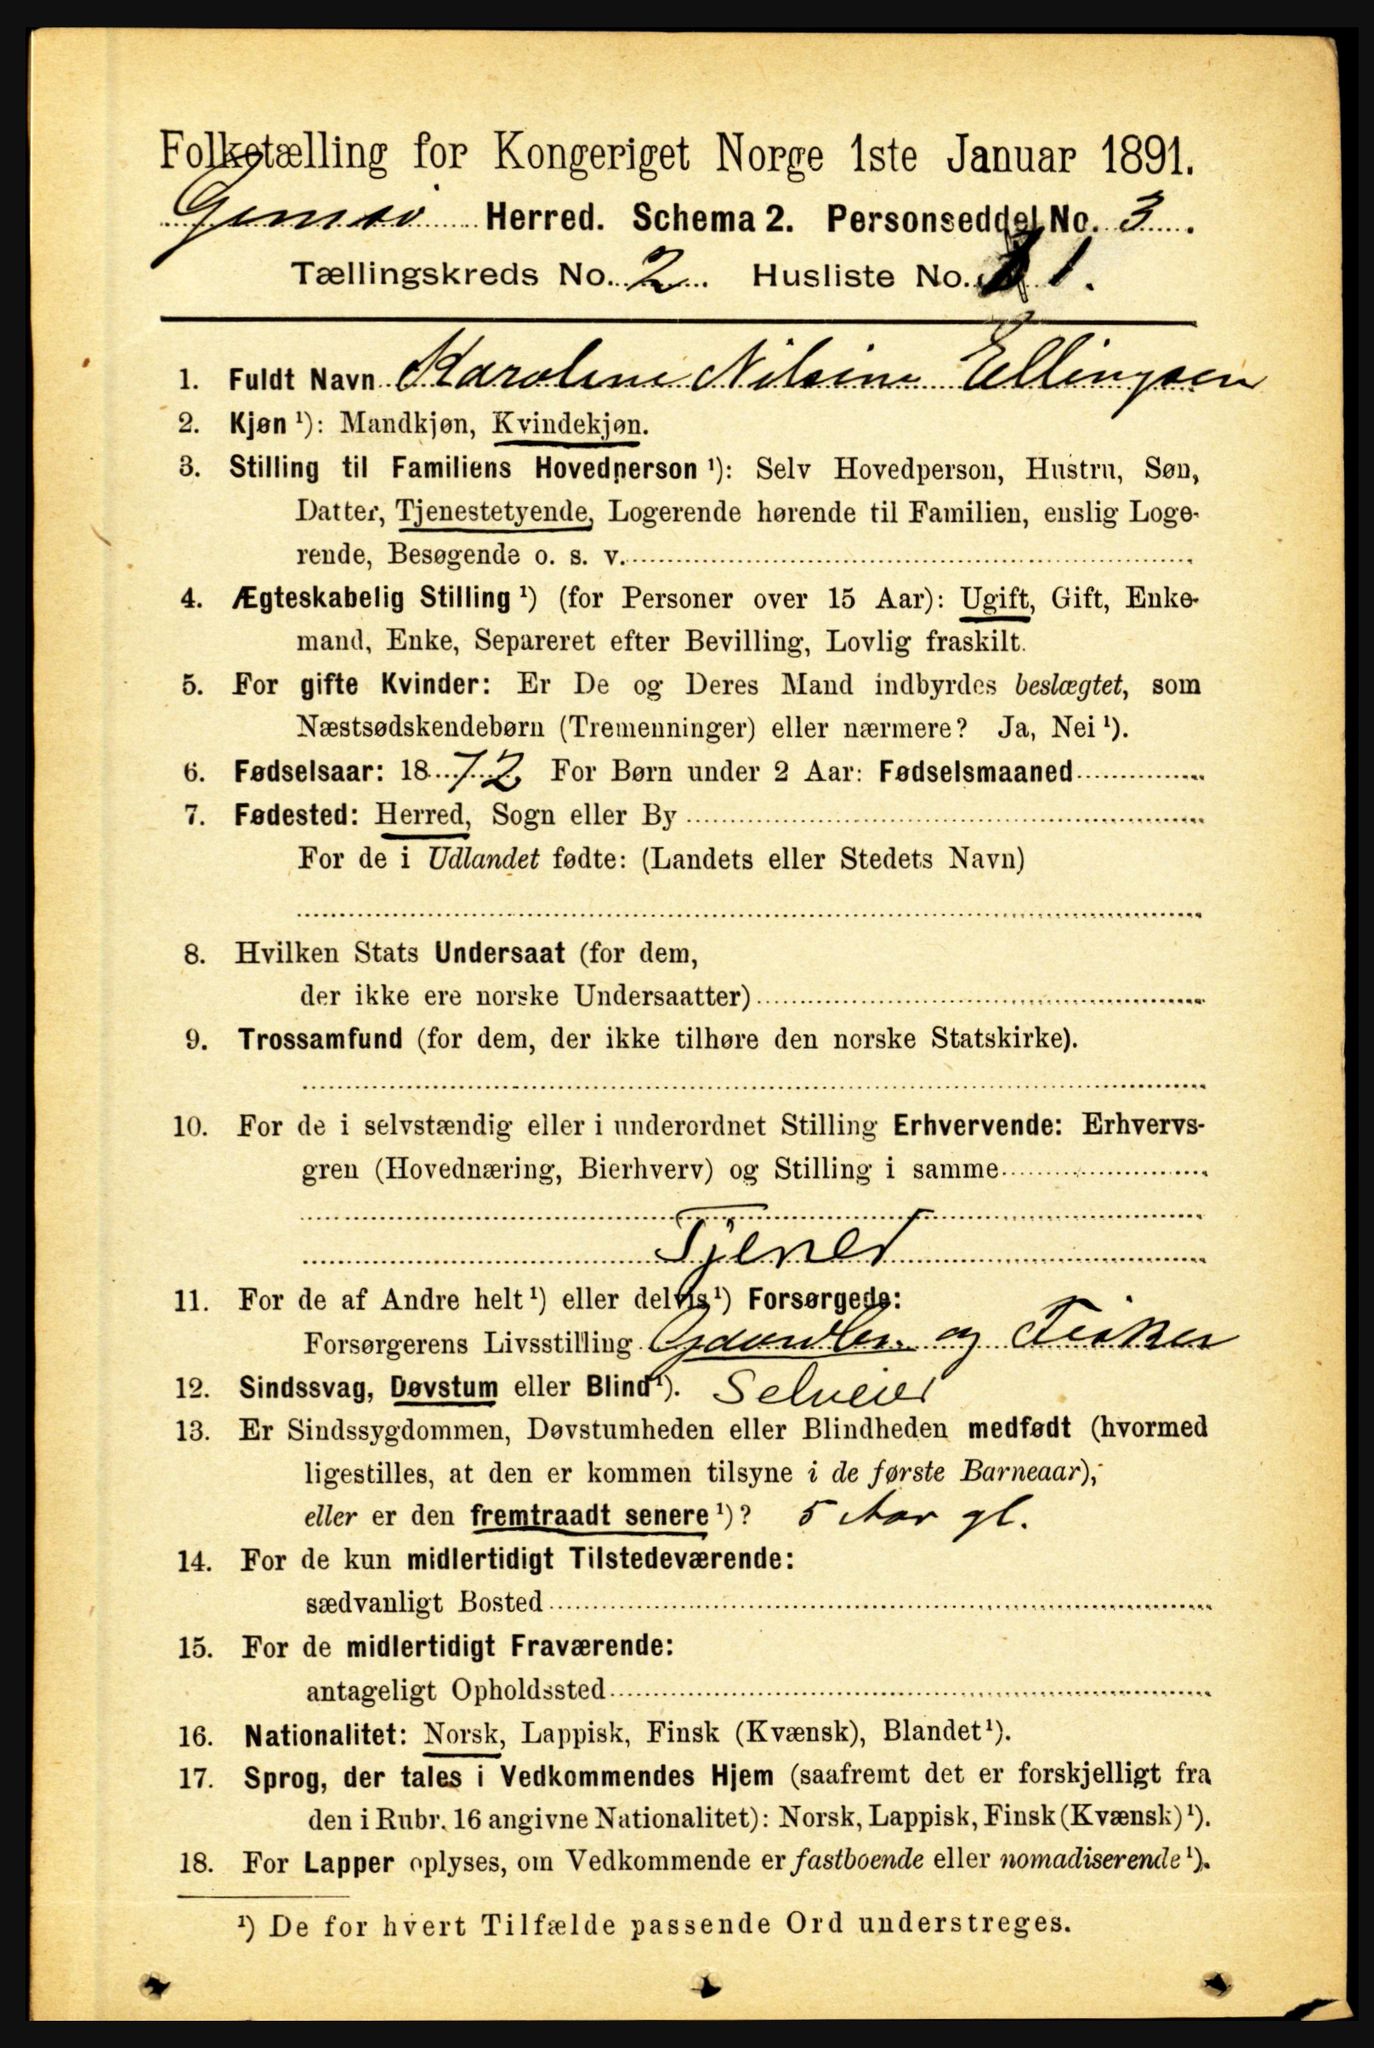 Folketælling for Kongeriget Norge 1ste Januar 1891.
Gimsø Herred. Schema 2. Personseddel No. 3.
Tællingskreds No. 2. Husliste No. 1.
1. Fuldt Navn Karoline Nilsine Ellingsen
2. Kjøn ¹): Mandkjøn, Kvindekjøn.
3. Stilling til Familiens Hovedperson ¹): Selv Hovedperson, Hustru, Søn,
Datter, Tjenestetyende, Logerende hørende til Familien, enslig Loge-
rende, Besøgende o. s. v.
4. Ægteskabelig Stilling ¹) (for Personer over 15 Aar): Ugift, Gift, Enke-
mand, Enke, Separeret efter Bevilling, Lovlig fraskilt.
5. For gifte Kvinder: Er De og Deres Mand indbyrdes beslægtet, som
Næstsødskendebørn (Tremenninger) eller nærmere? Ja, Nei ¹).
6. Fødselsaar: 1872 For Børn under 2 Aar: Fødselsmaaned
7. Fødested: Herred, Sogn eller By
For de i Udlandet fødte: (Landets eller Stedets Navn)
8. Hvilken Stats Undersaat (for dem,
der ikke ere norske Undersaatter)
9. Trossamfund (for dem, der ikke tilhøre den norske Statskirke).
10. For de i selvstændig eller i underordnet Stilling Erhvervende: Erhvervs-
gren (Hovednæring, Bierhverv) og Stilling i samme
Tjener
11. For de af Andre helt ¹) eller delvis ¹) Forsørgede:
Forsørgerens Livsstilling Gaardbr. og Fisker
12. Sindssvag, Døvstum eller Blind ¹). Selveier
13. Er Sindssygdommen, Døvstumheden eller Blindheden medfødt (hvormed
ligestilles, at den er kommen tilsyne i de første Barneaar),
eller er den fremtraadt senere ¹)? 5 Aar gl.
14. For de kun midlertidigt Tilstedeværende:
sædvanligt Bosted
15. For de midlertidigt Fraværende:
antageligt Opholdssted
16. Nationalitet: Norsk, Lappisk, Finsk (Kvænsk), Blandet ¹).
17. Sprog, der tales i Vedkommendes Hjem (saafremt det er forskjelligt fra
den i Rubr. 16 angivne Nationalitet): Norsk, Lappisk, Finsk (Kvænsk) ¹).
18. For Lapper oplyses, om Vedkommende er fastboende eller nomadiserende ¹).
¹) De for hvert Tilfælde passende Ord understreges.